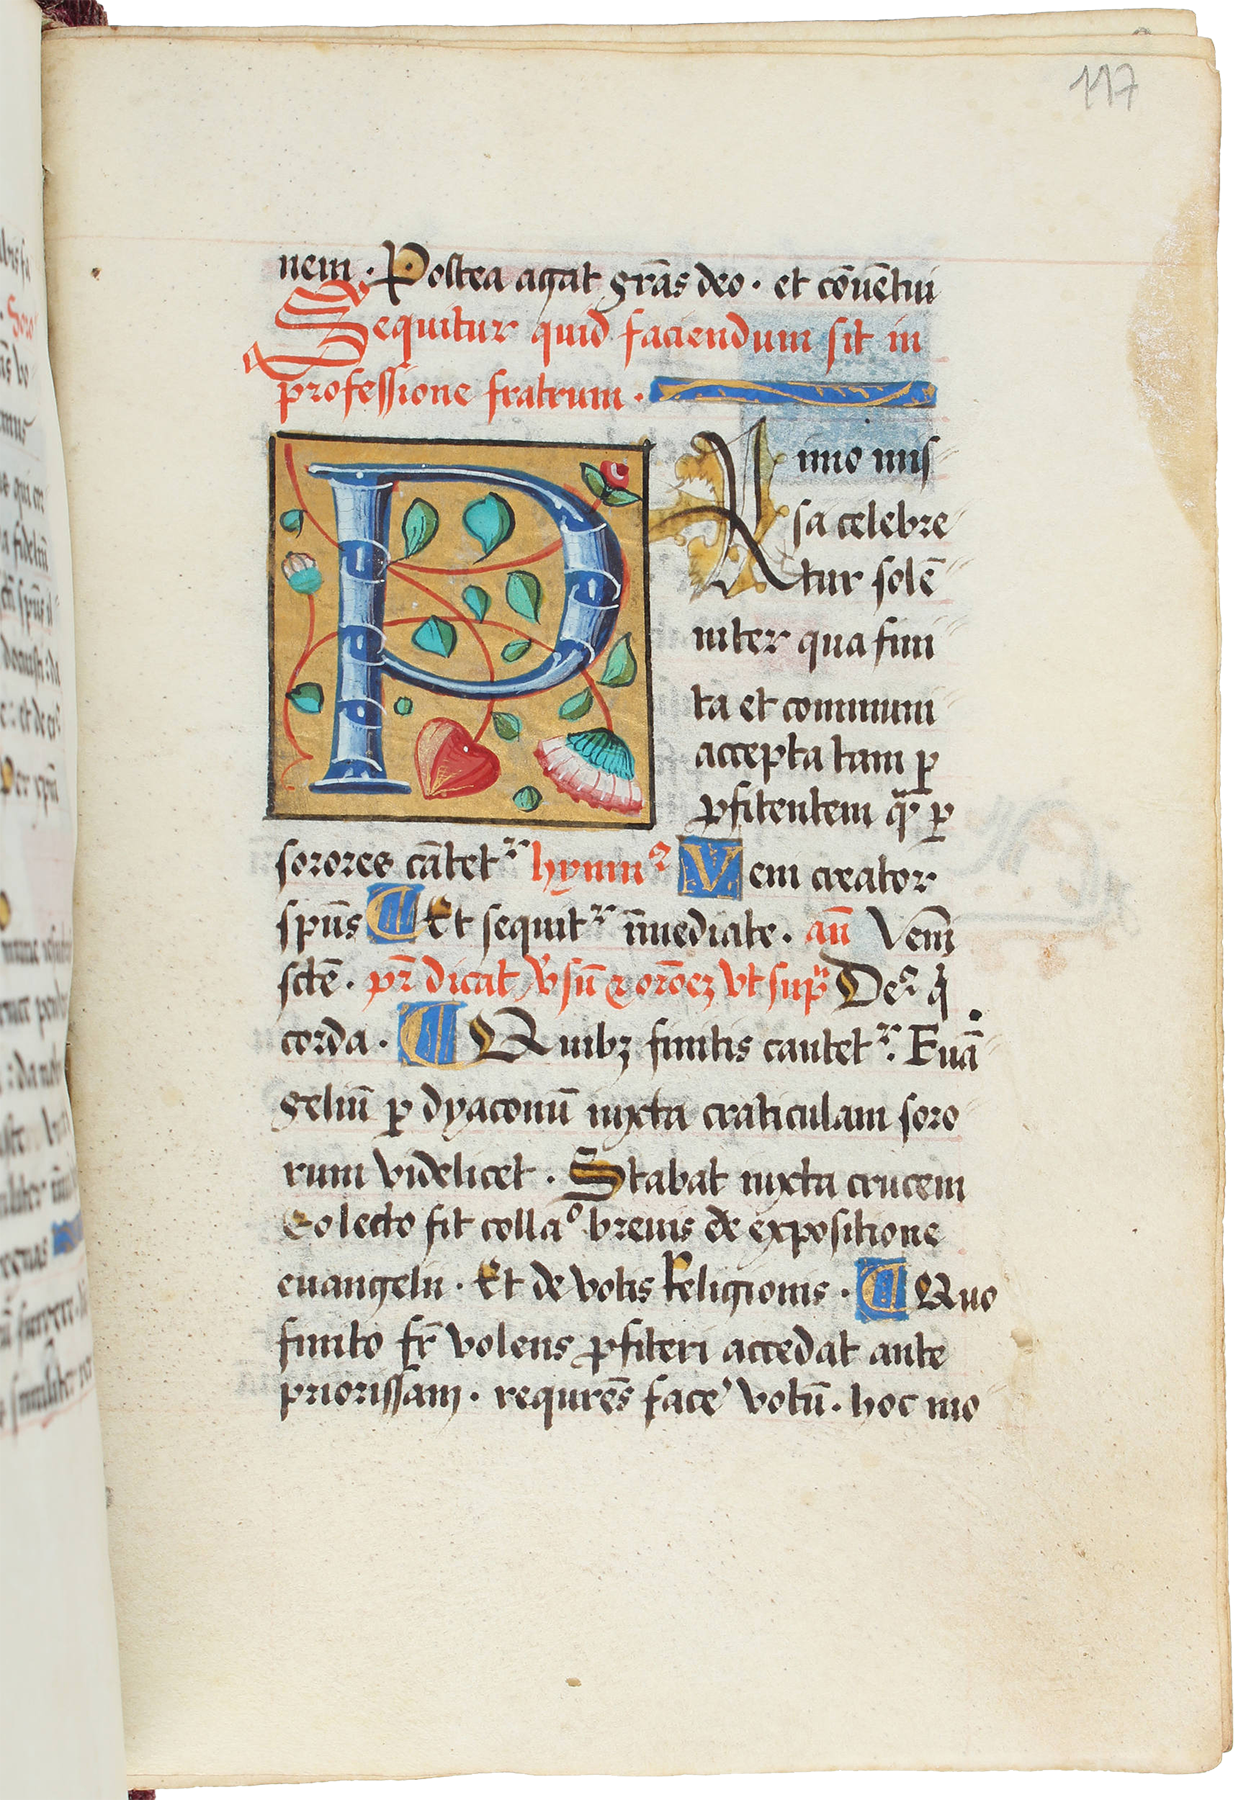 117
nem · Postea agat grãs deo · et cõuẽtui
Sequitur quid faciendum sit in
professione fratrum ·
PRimo mis
sa celebre
tur solẽ
niter qua fini
ta et communi
accepta tam p
pfitentem q̃ p
sorores cãtetᷣ hymnꝰ Veni creator
spũs Et sequitᷣ ĩmediate · añ Veni
scte · pr̃ dicat v̓sũ ⁊ orõez vt supᷓ Deꝰ q̓
corda · Quibꝫ finitis cantetᷣ · Euã
geliũ p dyaconũ iuxta craticulam soro
rum videlicet · Stabat iuxta crucem
Quo lecto fit collaᵒ breuis de expositione
euangelii · Et de votis Religionis · Quo
finito fr̃ volens pfiteri accedat ante
priorissam · requirẽs face᾿ votũ · hoc mo